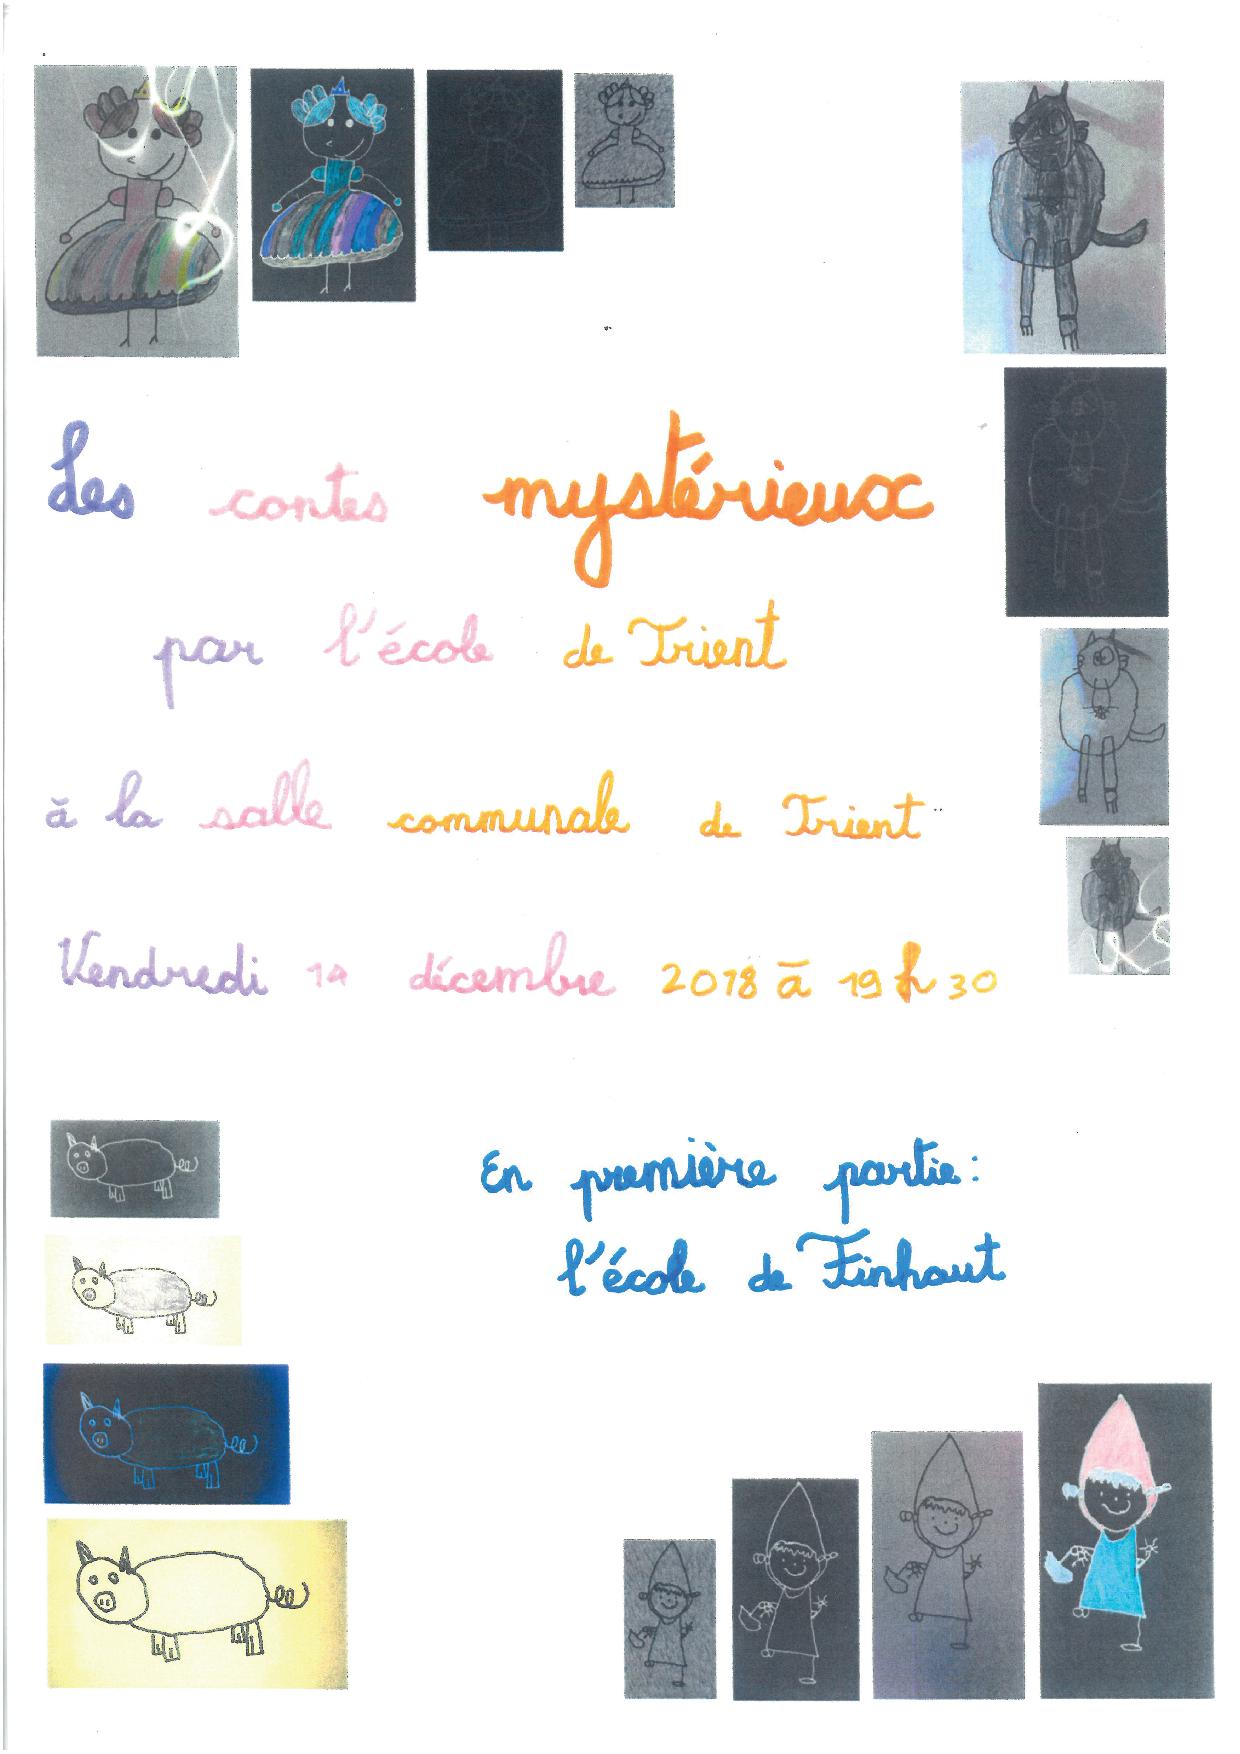 Les contes mystérieux
par l'école de Trient
à la salle communale de Trient
Vendredi 14 décembre 2018 à 19 h 30
En première partie:
l'école de Finhaut